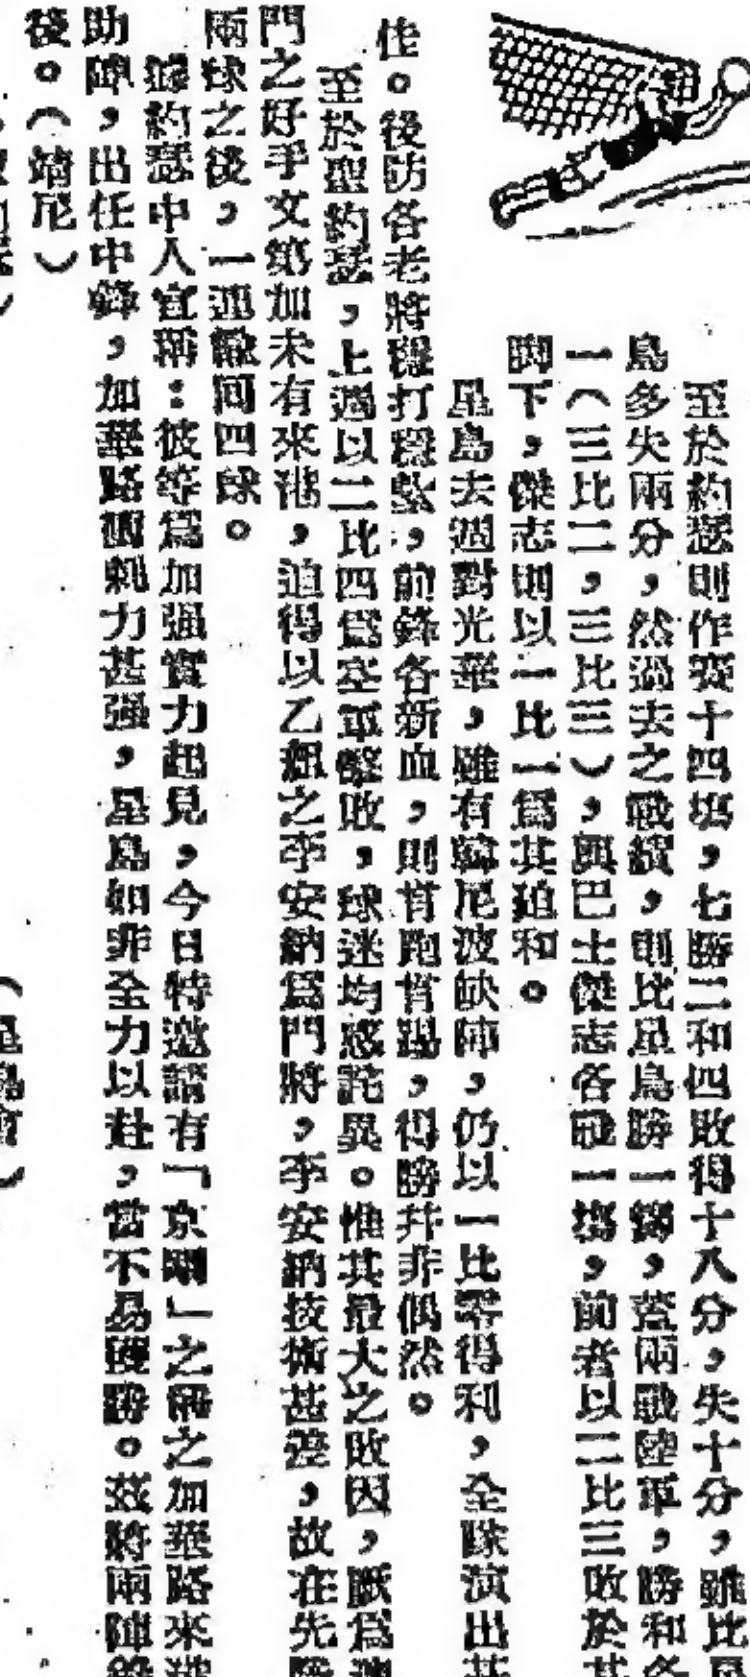 至於約瑟則作賽十四塲，七勝二和四敗得十八分，失十分，雖比星
島多失兩分，然過去之戰績，則比星島勝一籌，蓋兩戰陸軍，勝和各
一（三比二，三比三），與巴士傑志各戰一塲，前者以二比三敗於其
脚下，傑志則以一比一爲其廹和。
星島去週對光華，雖有韓尼波缺陣，仍以一比零得利，全隊演出甚
佳。後防各老將穩打穩紮，前鋒各新血，則肯跑肯踢，得勝幷非偶然。
至於聖約瑟，上週以二比四爲空軍擊敗，球迷均感詫異。惟其最大之敗因，厥爲
門之好手文第加未有來港，迫得以乙組之李安納爲門將，李安納技術甚差，故在先
兩球之後，一連輸回四球。
據約瑟中人宣稱：彼等爲加强實力起見，今日特邀請有「京剛」之稱之加華路來港
助陣，出任中鋒，加華路衝刺力甚强，星島如非全力以赴，當不易獲勝。茲將兩陣
後。（靖尼）
（星島會）